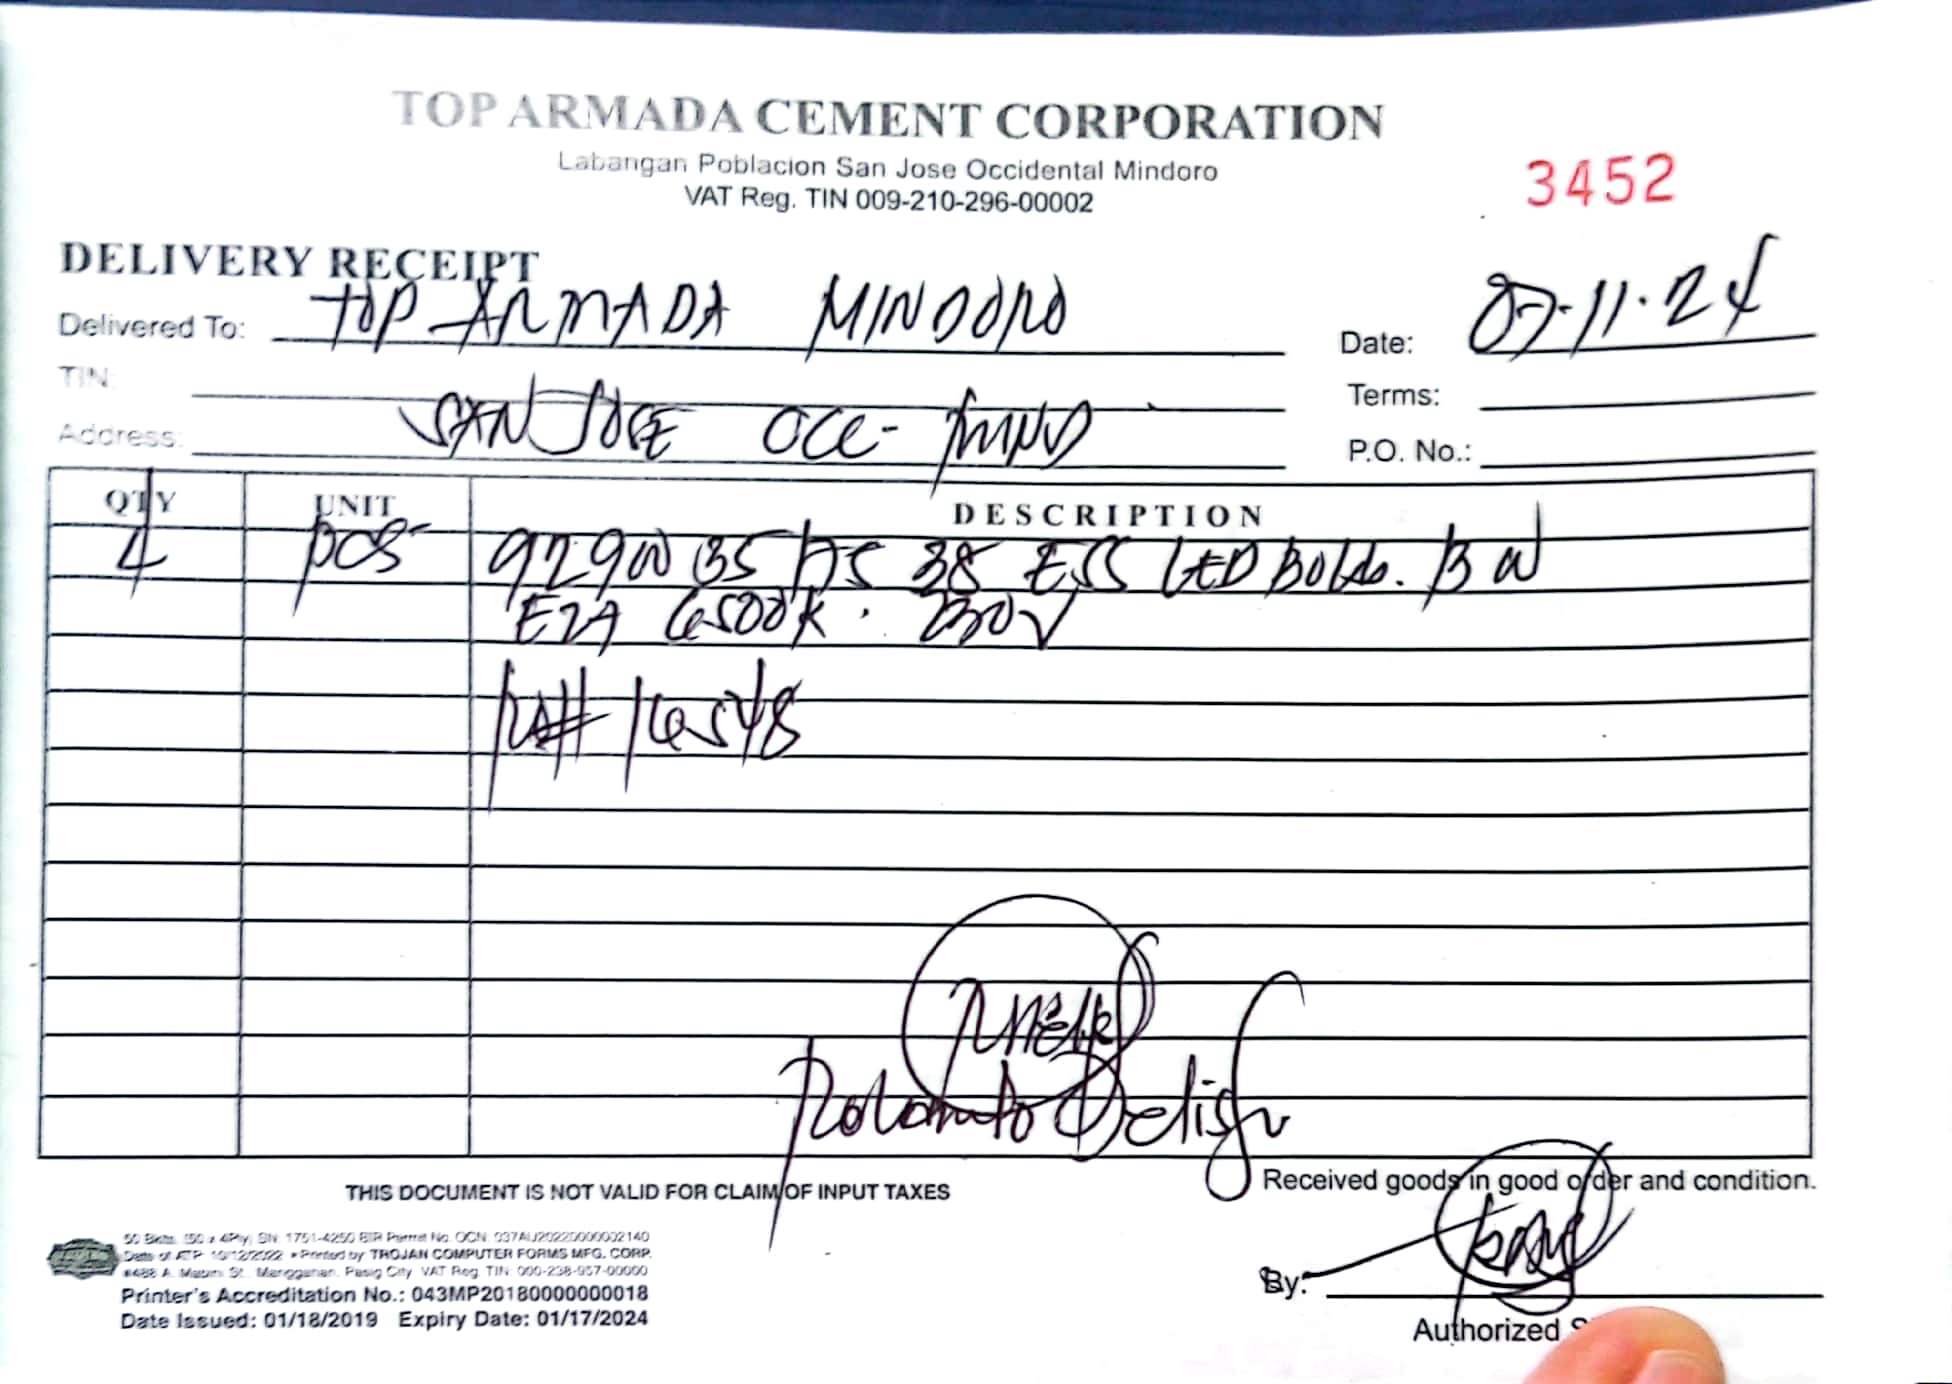 TOP ARMADA CEMENT CORPORATION
Labangan Poblacion San Jose Occidental Mindoro
VAT Reg. TIN 009-210-296-00002
3452
DELIVERY RECEIPT
Delivered To: TOP ARMADA MINDORO
Date: 07-11-24
TIN:
Terms:
Address: SAN JOSE OCC- MIND
P.O. No.:
QTY UNIT DESCRIPTION
4 pcs 9290 ESS LED
6500K. 230V
16548
Rolando
THIS DOCUMENT IS NOT VALID FOR CLAIM OF INPUT TAXES
Received goods in good order and condition.
50 Bklts. (50 x 4Ply) SN: 1751-4250 BIR Permit No. OCN: 037AU20220000002140
Date of ATP: 10/12/2022 • Printed by TROJAN COMPUTER FORMS MFG. CORP.
#488 A. Mabini St., Manggahan, Pasig City VAT Reg. TIN: 000-238-957-00000
Printer's Accreditation No.: 043MP20180000000018
Date Issued: 01/18/2019 Expiry Date: 01/17/2024
By:
Authorized